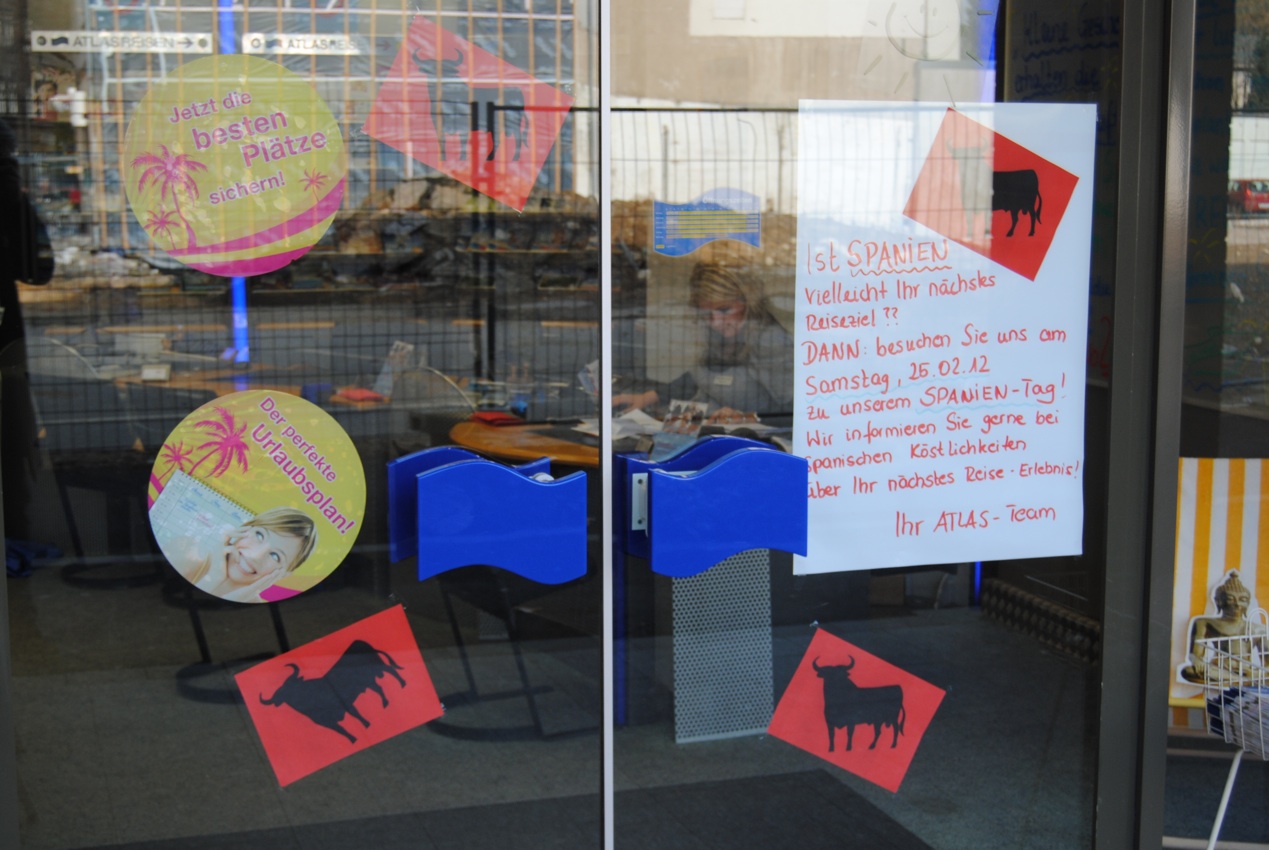 ATLASREISEN
ATLASREISEN
Jetzt die
besten
Plätze
sichern!
Ist SPANIEN
vielleicht Ihr nächstes
Reiseziel ??
DANN: besuchen Sie uns am
Samstag, 25.02.12
zu unserem SPANIEN-Tag!
Wir informieren Sie gerne bei
Spanischen Köstlichkeiten
über Ihr nächstes Reise-Erlebnis!
Ihr ATLAS-Team
Der perfekte
Urlaubsplan!